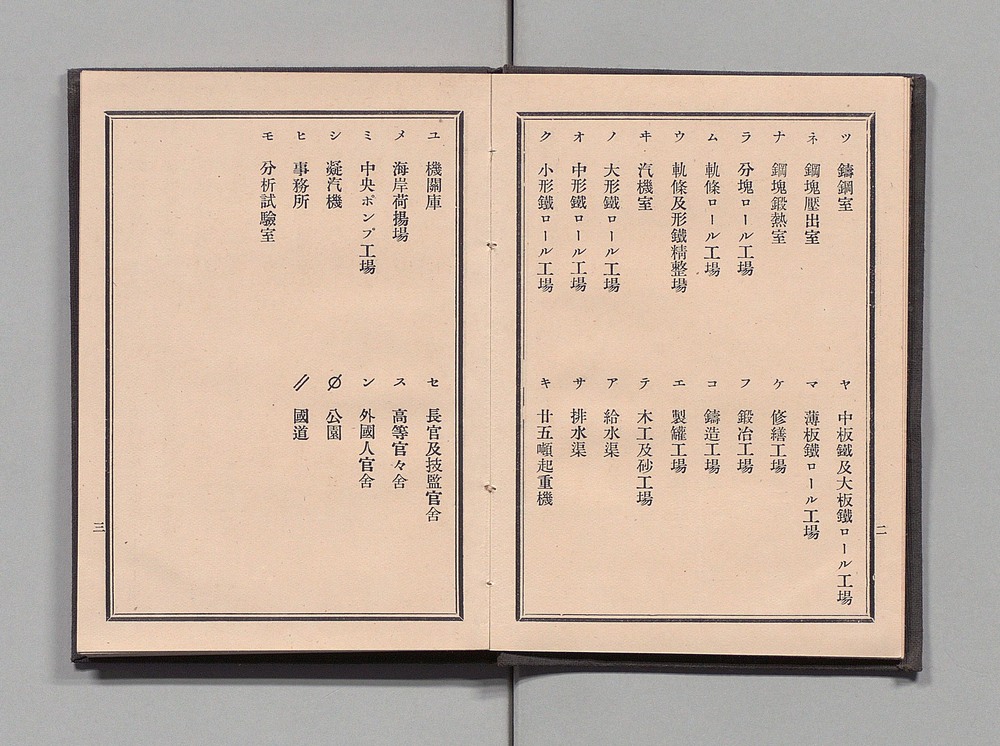 ツ 鑄鋼室
ネ 鋼塊壓出室
ナ 鋼塊鍛熱室
ラ 分塊ロール工場
ム 軌條ロール工場
ウ 軌條及形鐵精整場
ヰ 汽機室
ノ 大形鐵ロール工場
オ 中形鐵ロール工場
ク 小形鐵ロール工場
ヤ 中板鐵及大板鐵ロール工場
マ 薄板鐵ロール工場
ケ 修繕工場
フ 鍛冶工場
コ 鑄造工場
エ 製罐工場
テ 木工及砂工場
ア 給水渠
サ 排水渠
キ 廿五噸起重機
二
ユ 機關庫
メ 海岸荷揚場
ミ 中央ポンプ工場
シ 凝汽機
ヒ 事務所
モ 分析試驗室
セ 長官及技監官舍
ス 高等官々舍
ン 外國人官舍
〆 公園
〃 國道
三